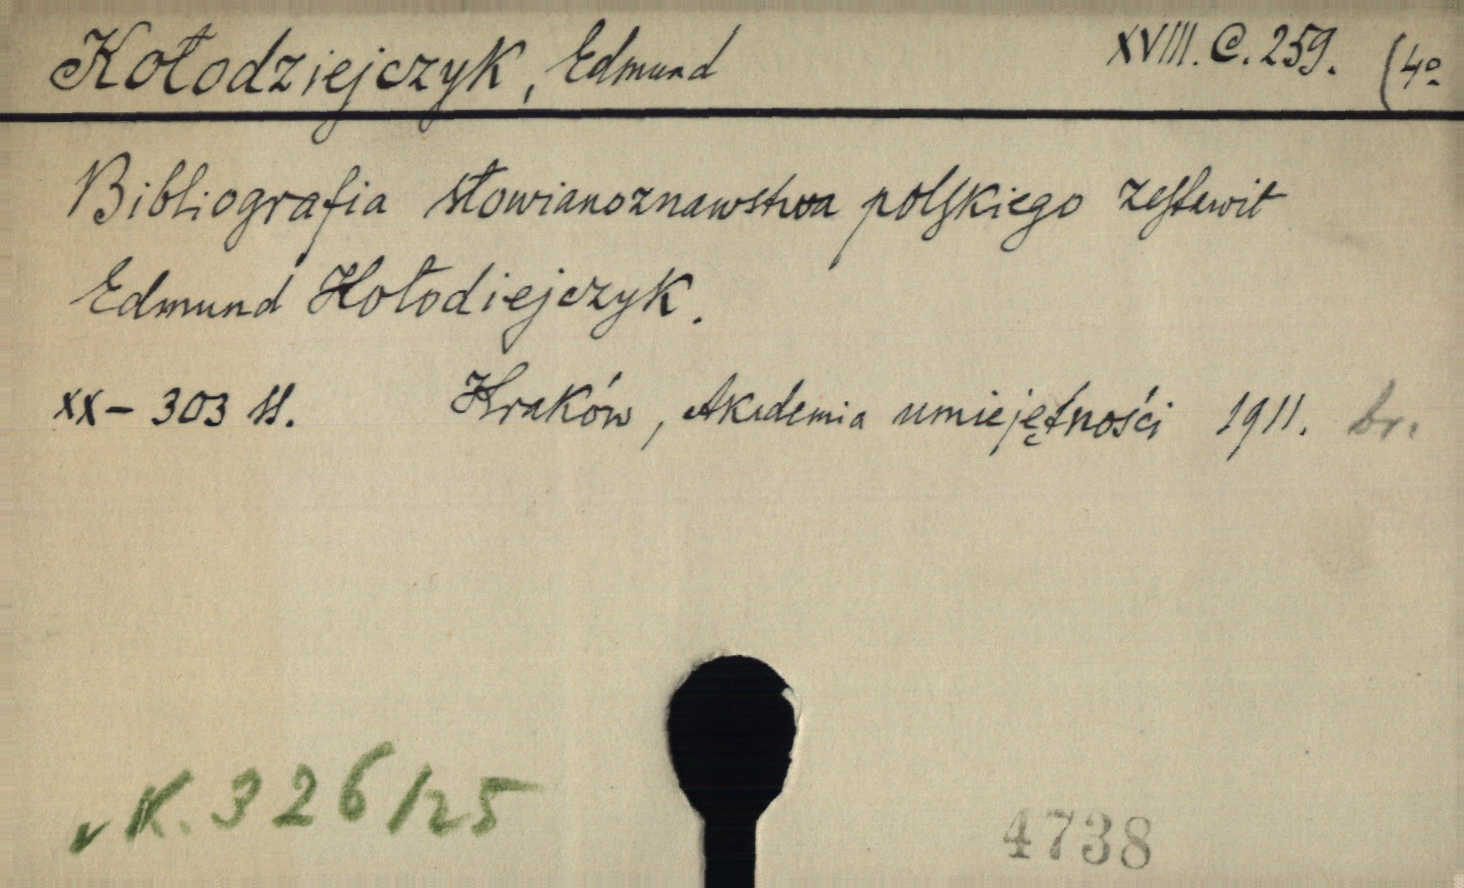 Kołodziejczyk, Edmund XVIII. C. 259. (4º
Bibliografia słowianoznawstwa polskiego zestawił
Edmund Kołodiejczyk.
XX – 303 ss. Kraków, Akademia umiejętności 1911. br.
K. 326/25
4738